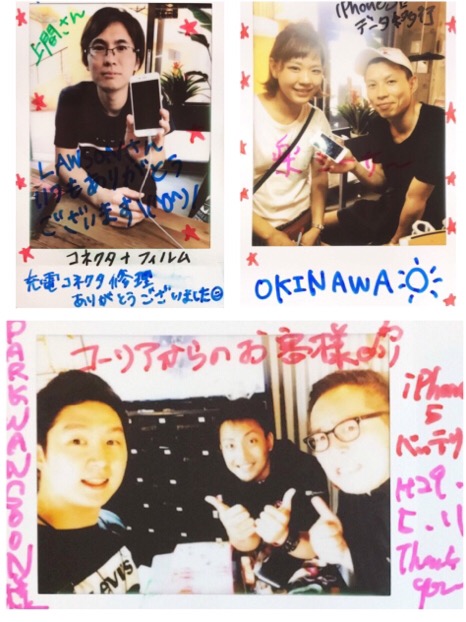 上間さん
LAWSONさん
いつもありがとう
ございます
コネクタ+フィルム
充電コネクタ修理
ありがとうございました
iPhone
データ移行
OKINAWA
コーリアからのお客様
PARK
iPhone
5
バッテリ
H29.
5.11
Thank
you
Levi's